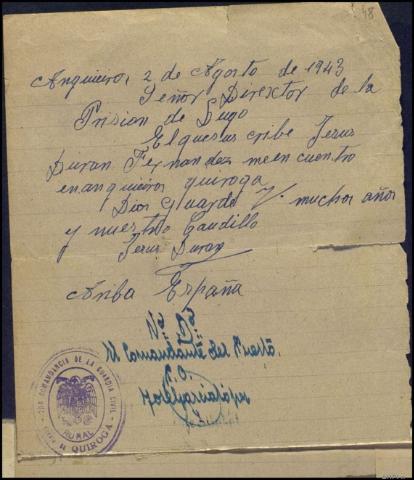 48
Anquieiros 2 de Agosto de 1943
Señor Director de la
Prision de Lugo
El que sus cribe Jesus
Duran Fernandez me en cuentro
en anquieiros quiroga
Dios Guarde V. muchos años
y nuestro Caudillo
Jesus Duran
Arriba España
Vº Bº
El Comandante del Puesto.
P.O.
José García López
COMANDANCIA DE LA GUARDIA CIVIL
RURAL
QUIROGA